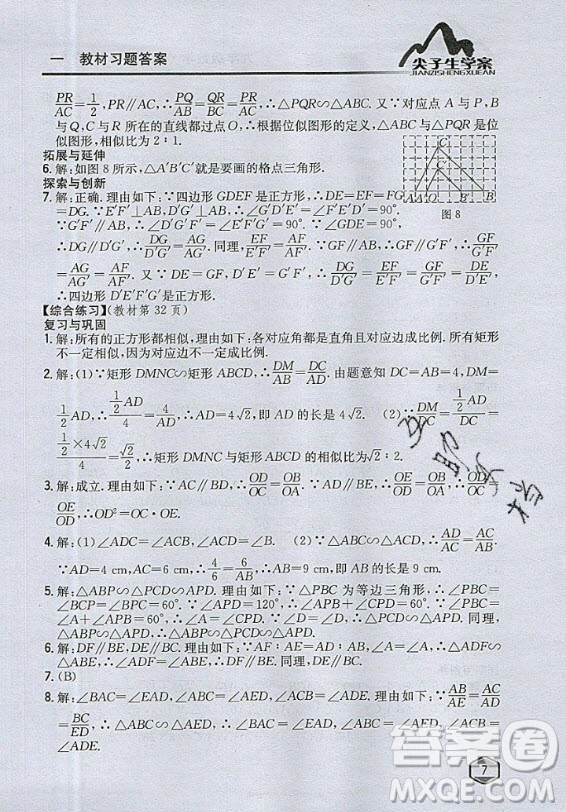 一 教材习题答案
尖子生学案
JIANZISHENGXUEAN
PR/AC=1/2,∴PR/AC=PQ/AB=QR/BC,∴△PQR∽△ABC.又点A与P,B
与Q,C与R所在的直线都过点O,根据位似图形的定义,△ABC与△PQR是位
似图形,相似比为2∶1.
拓展与延伸
6.解:如图8所示,△A′B′C′就是要画的格点三角形.
探索与创新
7.解:正确.理由如下:∵四边形GDEF是正方形,∴DE=EF=FG
=DG.∵E′F′⊥AB,∴∠G′D′E′=∠D′E′F′=90°.
∴DG∥D′G′,∴DG/D′G′=AG/AG′=AF/AF′.同理,EF/E′F′=AF/AF′,∴GF∥G′F′,∴GF/G′F′
=AG/AG′=AF/AF′.又∵DE∥D′E′,∠G′D′E′=∠D′E′F′=90°.
∴四边形D′E′F′G′是正方形.
图8
【综合练习】(教材第32页)
复习与巩固
1.解:所有的正方形都相似,理由如下:各对应角都是直角且对应边成比例.但矩形
不一定相似,因为它们的对应边不一定成比例.
2.解:(1)∵矩形DMNC∽矩形ABCD,∴DM/AB=DC/AD.由题意知DC=AB=4,DM=
1/2AD,∴1/2AD/4=4/AD,∴AD=4√2,即AD的长是4√2. (2)∵DM/DC=1/2AD/DC=
1/2×4√2/4=√2/2,∴矩形DMNC与矩形ABCD的相似比为√2∶2.
3.解:成立.理由如下:∵AC∥BD,∴OD/OC=OB/OA.∵AD∥BE,∴OE/OD=OB/OA,∴OD/OC=
OE/OD,∴OD²=OC·OE.
4.解:(1)∠ADC=∠ACB,∠ACD=∠B. (2)∵△ACD∽△ABC,∴AD/AC=AC/AB,
∴4/6=6/AB,∴AB=9(cm).
5.解:△ABP∽△PCD∽△APD.理由如下:∵△PBC为等边三角形,∴∠PBC=
∠BPC=∠PCB=60°.∵∠APD=120°,∴∠PBA=∠PCD=120°,∴∠BPC=
∠A+∠APB=60°,∴∠A=∠CPD,∴△ABP∽△PCD.同理可得△ABP∽
△APD,△PCD∽△APD,∴△ABP∽△PCD∽△APD.
6.解:△ADF∽△ABE.理由如下:∵AF∶AE=AD∶AB,∠A=∠A,∴△ADF∽
△ABE,∴∠ADF=∠ABE,∴DF∥BE.
7.(B)
8.解:∠BAC=∠EAD,∠ABC=∠AED,∠ACB=∠ADE.理由如下:∵AB/AE=AC/AD=
BC/ED,∴△ABC∽△AED,∴∠BAC=∠EAD,∠ABC=∠AED,∠ACB=∠ADE.
7
答案圈
MXQE.COM